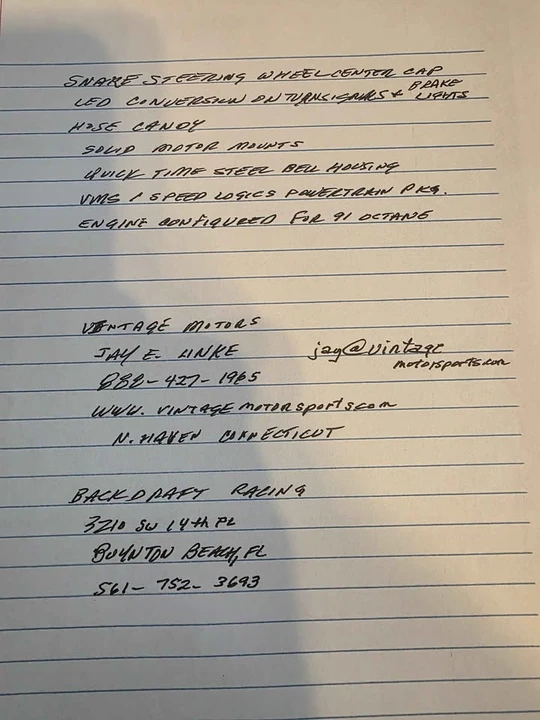 SNAKE STEERING WHEEL CENTER CAP
LED CONVERSION ON TURNSIGNALS & BRAKE LIGHTS
HOSE CANDY
SOLID MOTOR MOUNTS
QUICK TIME STEEL BELL HOUSING
VMS / SPEED LOGICS POWERTRAIN PKG.
ENGINE CONFIGURED FOR 91 OCTANE
VINTAGE MOTORS
JAY E. LINKE
jay@vintage motorsports.com
888-427-1965
WWW. VINTAGE motorsports.com
N. HAVEN CONNECTICUT
BACKDRAFT RACING
3210 SW 14th PL
BOYNTON BEACH, FL
561-752-3693